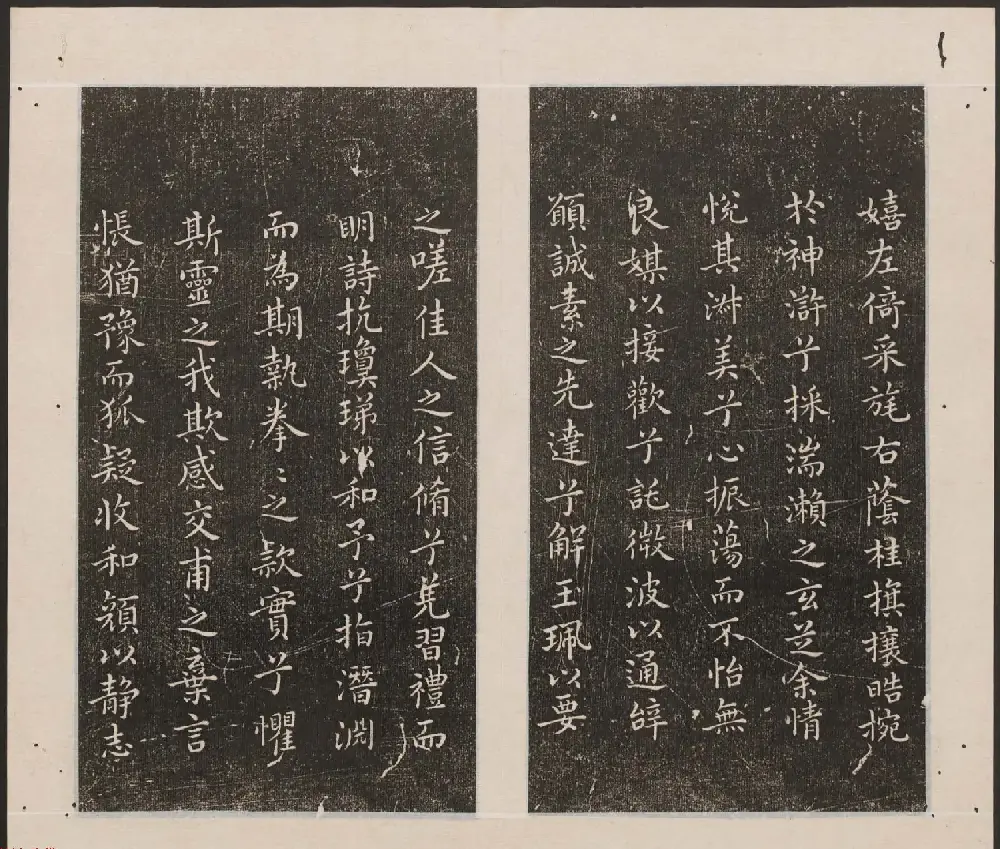 嬉左倚采旄右蔭桂旗攘皓捥
於神滸兮採湍瀨之玄芝余情
悅其淑美兮心振蕩而不怡無
良媒以接歡兮託微波以通辭
願誠素之先達兮解玉珮以要
之嗟佳人之信脩兮羌習禮而
明詩抗瓊珶以和予兮指潛淵
而為期執拳〻之款實兮懼
斯靈之我欺感交甫之棄言
悵猶豫而狐疑收和顏以靜志